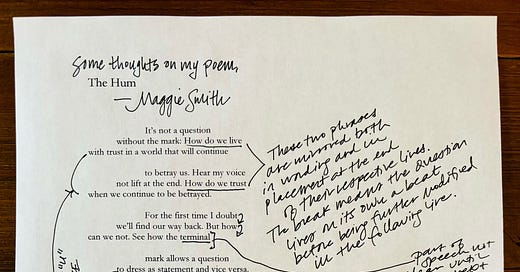 Some thoughts on my poem,
The Hum
— Maggie Smith
It's not a question
without the mark: How do we live
with trust in a world that will continue
to betray us. Hear my voice
not lift at the end. How do we trust
when we continue to be betrayed.
For the first time I doubt
we'll find our way back. But how
can we not. See how the terminal
mark allows a question
to dress as statement and vice versa.
These two phrases
are mirrored both
in wording and in
placement at the end
of their respective lines.
The break means the question
lives on its own a beat
before being further modified
in the following line.
part of
speech not
until